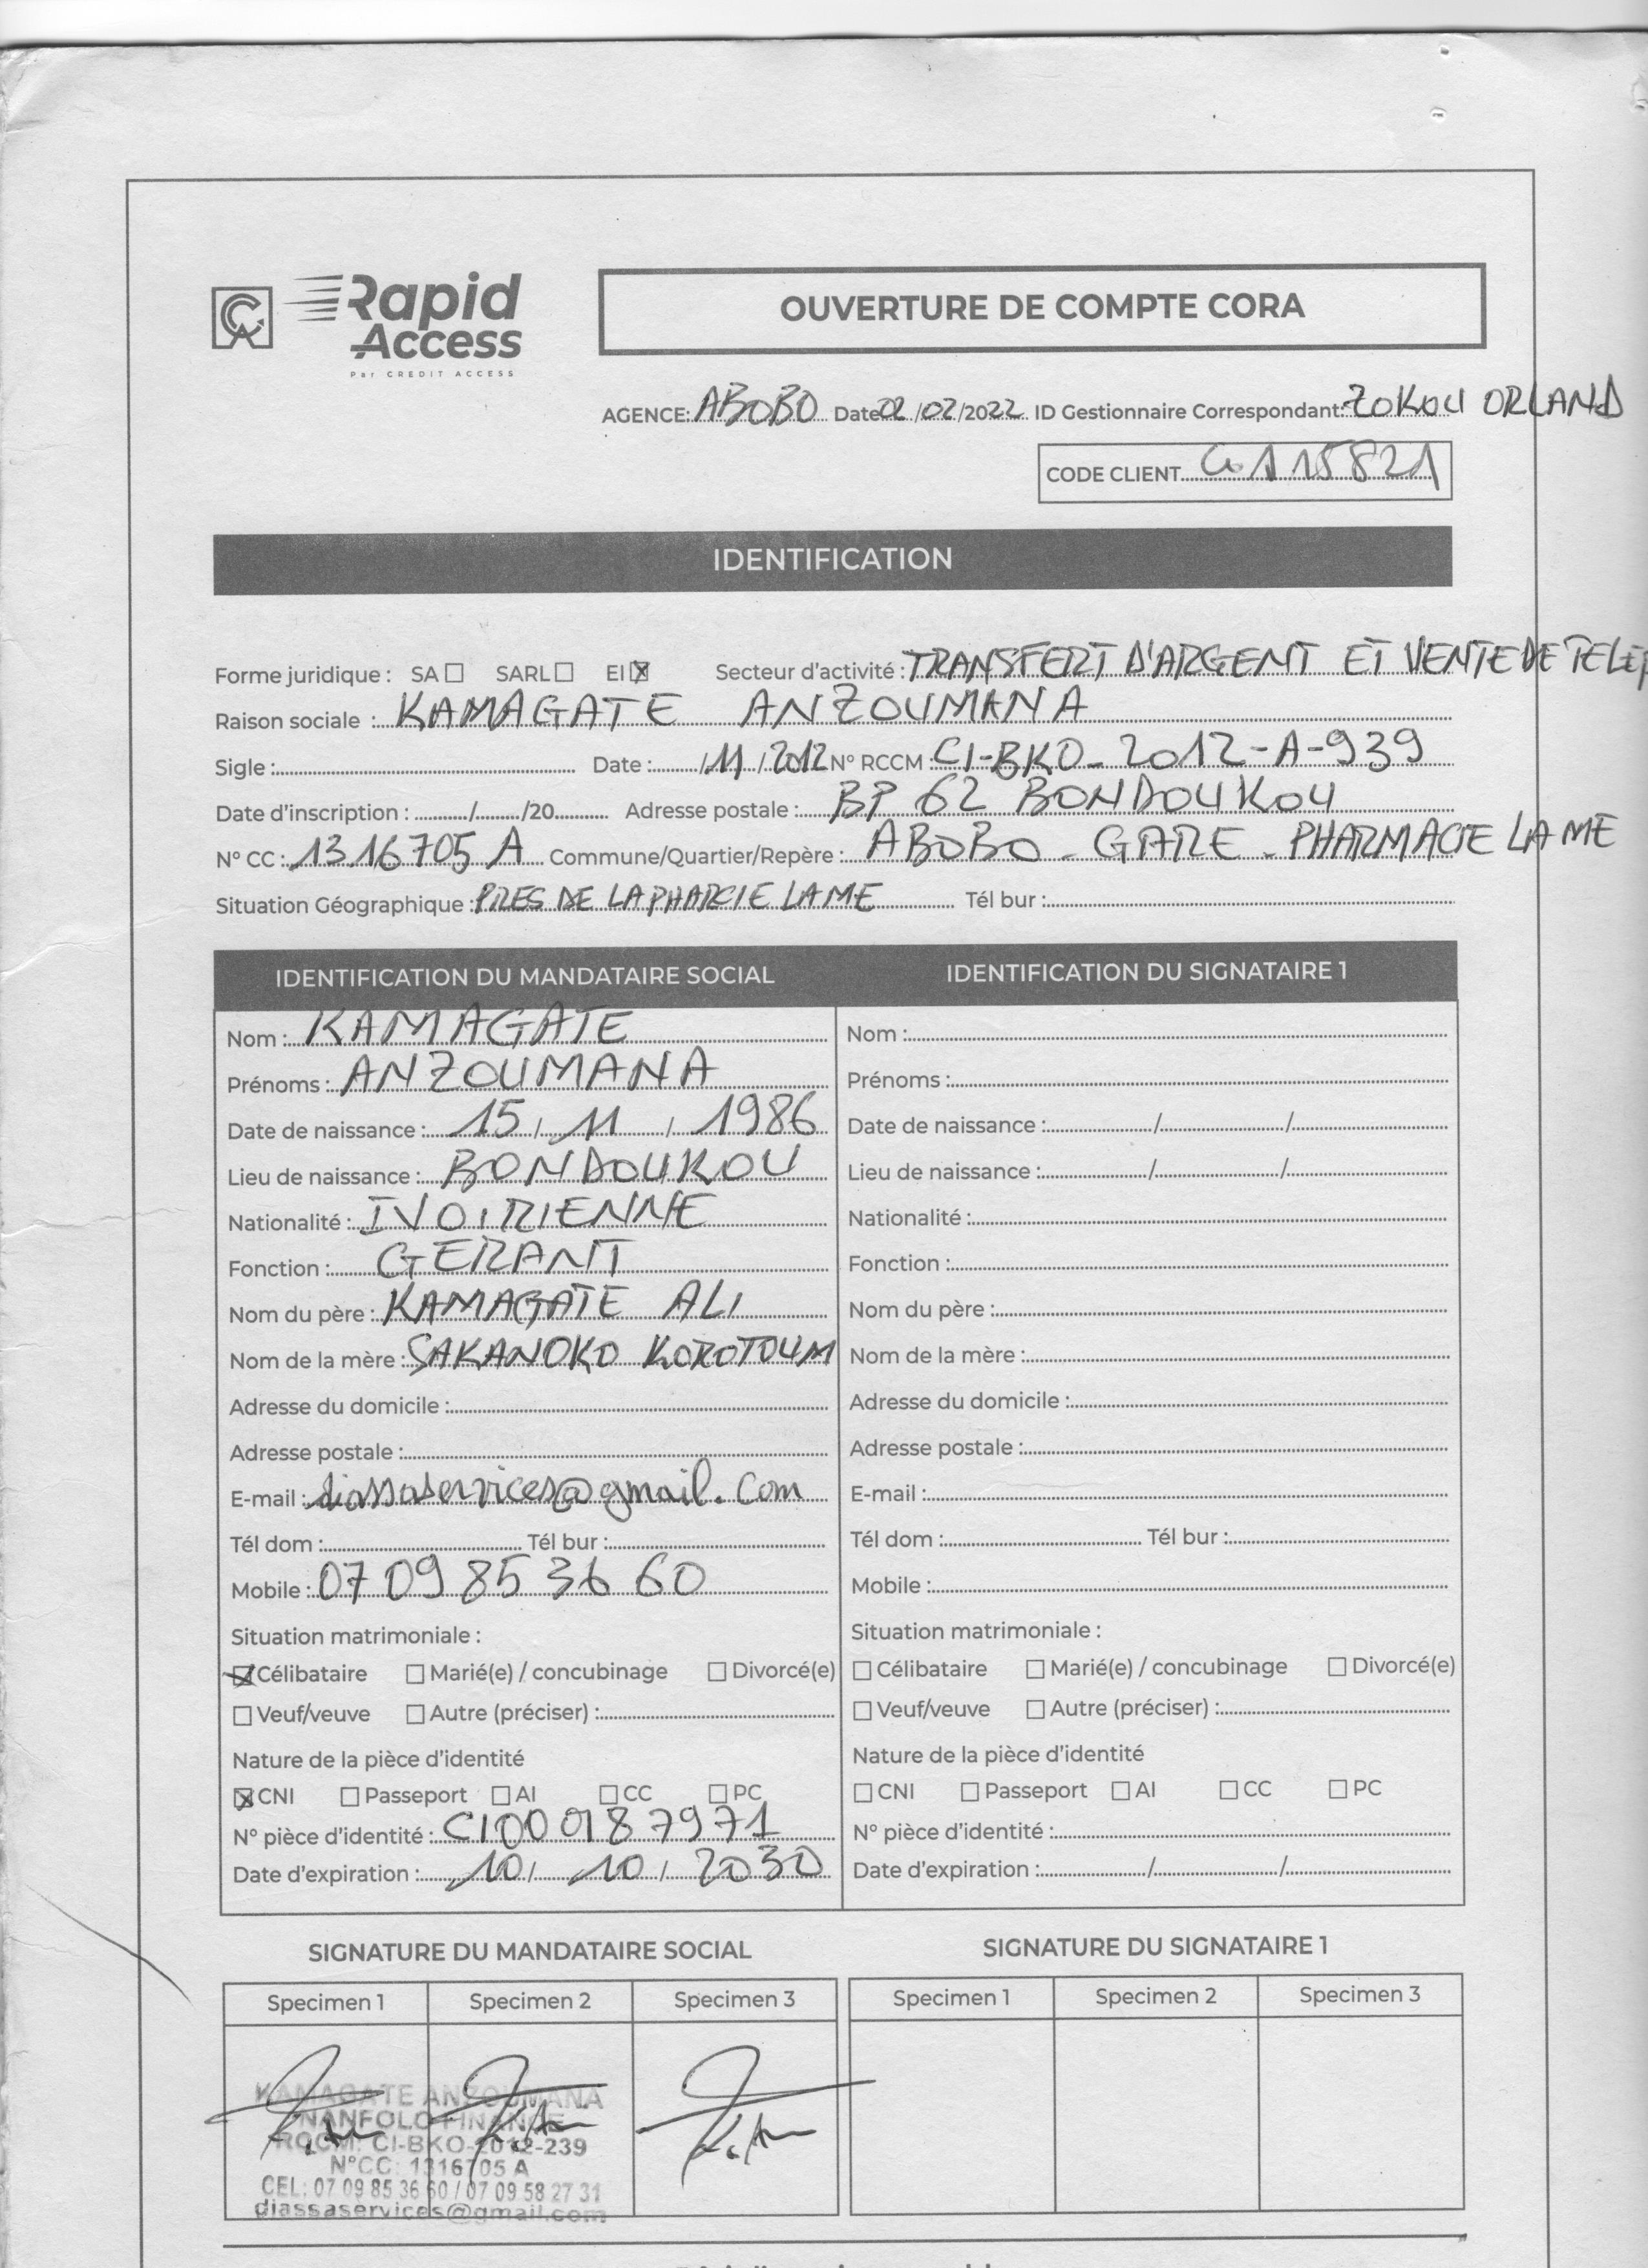 Rapid
Access
Par CREDIT ACCESS
OUVERTURE DE COMPTE CORA
AGENCE: ABOBO Date 02/02/2022 ID Gestionnaire Correspondant: ZOKOU ORLAND
CODE CLIENT 115821
IDENTIFICATION
Forme juridique : SA ☐ SARL ☐ EI ☒ Secteur d'activité : TRANSFERT D'ARGENT ET VENTE DE TELEP
Raison sociale : KAMAGATE ANZOUMANA
Sigle : Date : /11/2012 N° RCCM : CI-BKO-2012-A-939
Date d'inscription : / /20 Adresse postale : BP 62 BONDOUKOU
N° CC : 1316705 A Commune/Quartier/Repère : ABOBO - GARE - PHARMACIE LA ME
Situation Géographique : PRES DE LA PHARCIE LA ME Tél bur :
IDENTIFICATION DU MANDATAIRE SOCIAL
Nom : KAMAGATE
Prénoms : ANZOUMANA
Date de naissance : 15 / 11 / 1986
Lieu de naissance : BONDOUKOU
Nationalité : IVOIRIENNE
Fonction : GERANT
Nom du père : KAMAGATE ALI
Nom de la mère : SAKANOKO KOROTOUM
Adresse du domicile :
Adresse postale :
E-mail : diassaservices@gmail.com
Tél dom : Tél bur :
Mobile : 07 09 85 36 60
Situation matrimoniale :
☒ Célibataire ☐ Marié(e) / concubinage ☐ Divorcé(e)
☐ Veuf/veuve ☐ Autre (préciser) :
Nature de la pièce d'identité
☒ CNI ☐ Passeport ☐ AI ☐ CC ☐ PC
N° pièce d'identité : CI000987971
Date d'expiration : 10 / 10 / 2030
IDENTIFICATION DU SIGNATAIRE 1
Nom :
Prénoms :
Date de naissance : / /
Lieu de naissance : / /
Nationalité :
Fonction :
Nom du père :
Nom de la mère :
Adresse du domicile :
Adresse postale :
E-mail :
Tél dom : Tél bur :
Mobile :
Situation matrimoniale :
☐ Célibataire ☐ Marié(e) / concubinage ☐ Divorcé(e)
☐ Veuf/veuve ☐ Autre (préciser) :
Nature de la pièce d'identité
☐ CNI ☐ Passeport ☐ AI ☐ CC ☐ PC
N° pièce d'identité :
Date d'expiration : / /
SIGNATURE DU MANDATAIRE SOCIAL
Specimen 1 Specimen 2 Specimen 3
KAMAGATE ANZOUMANA
NANFOLO FINANCE
RCCM: CI-BKO-2012-239
N°CC: 1316705 A
CEL: 07 09 85 36 60 / 07 09 58 27 31
diassaservices@gmail.com
SIGNATURE DU SIGNATAIRE 1
Specimen 1 Specimen 2 Specimen 3